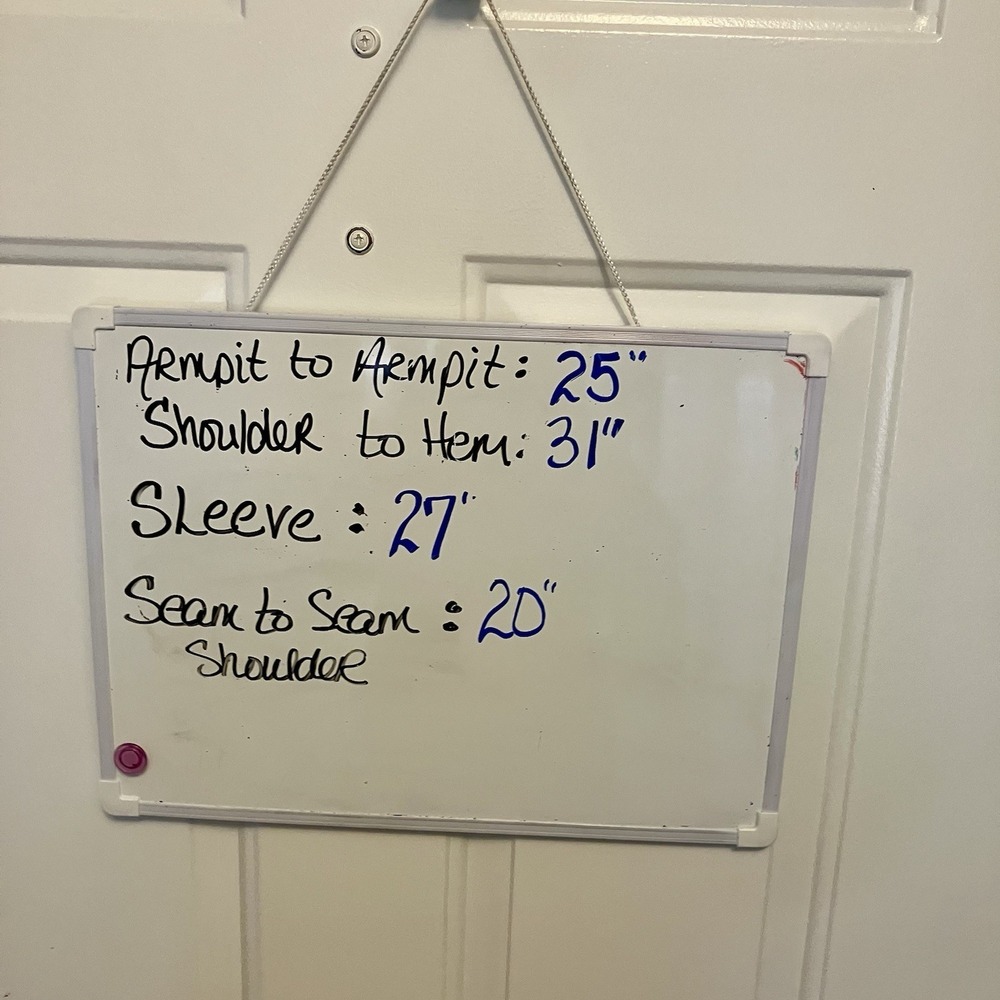 Armpit to Armpit: 25"
Shoulder to Hem: 31"
Sleeve : 27"
Seam to Seam : 20"
Shoulder